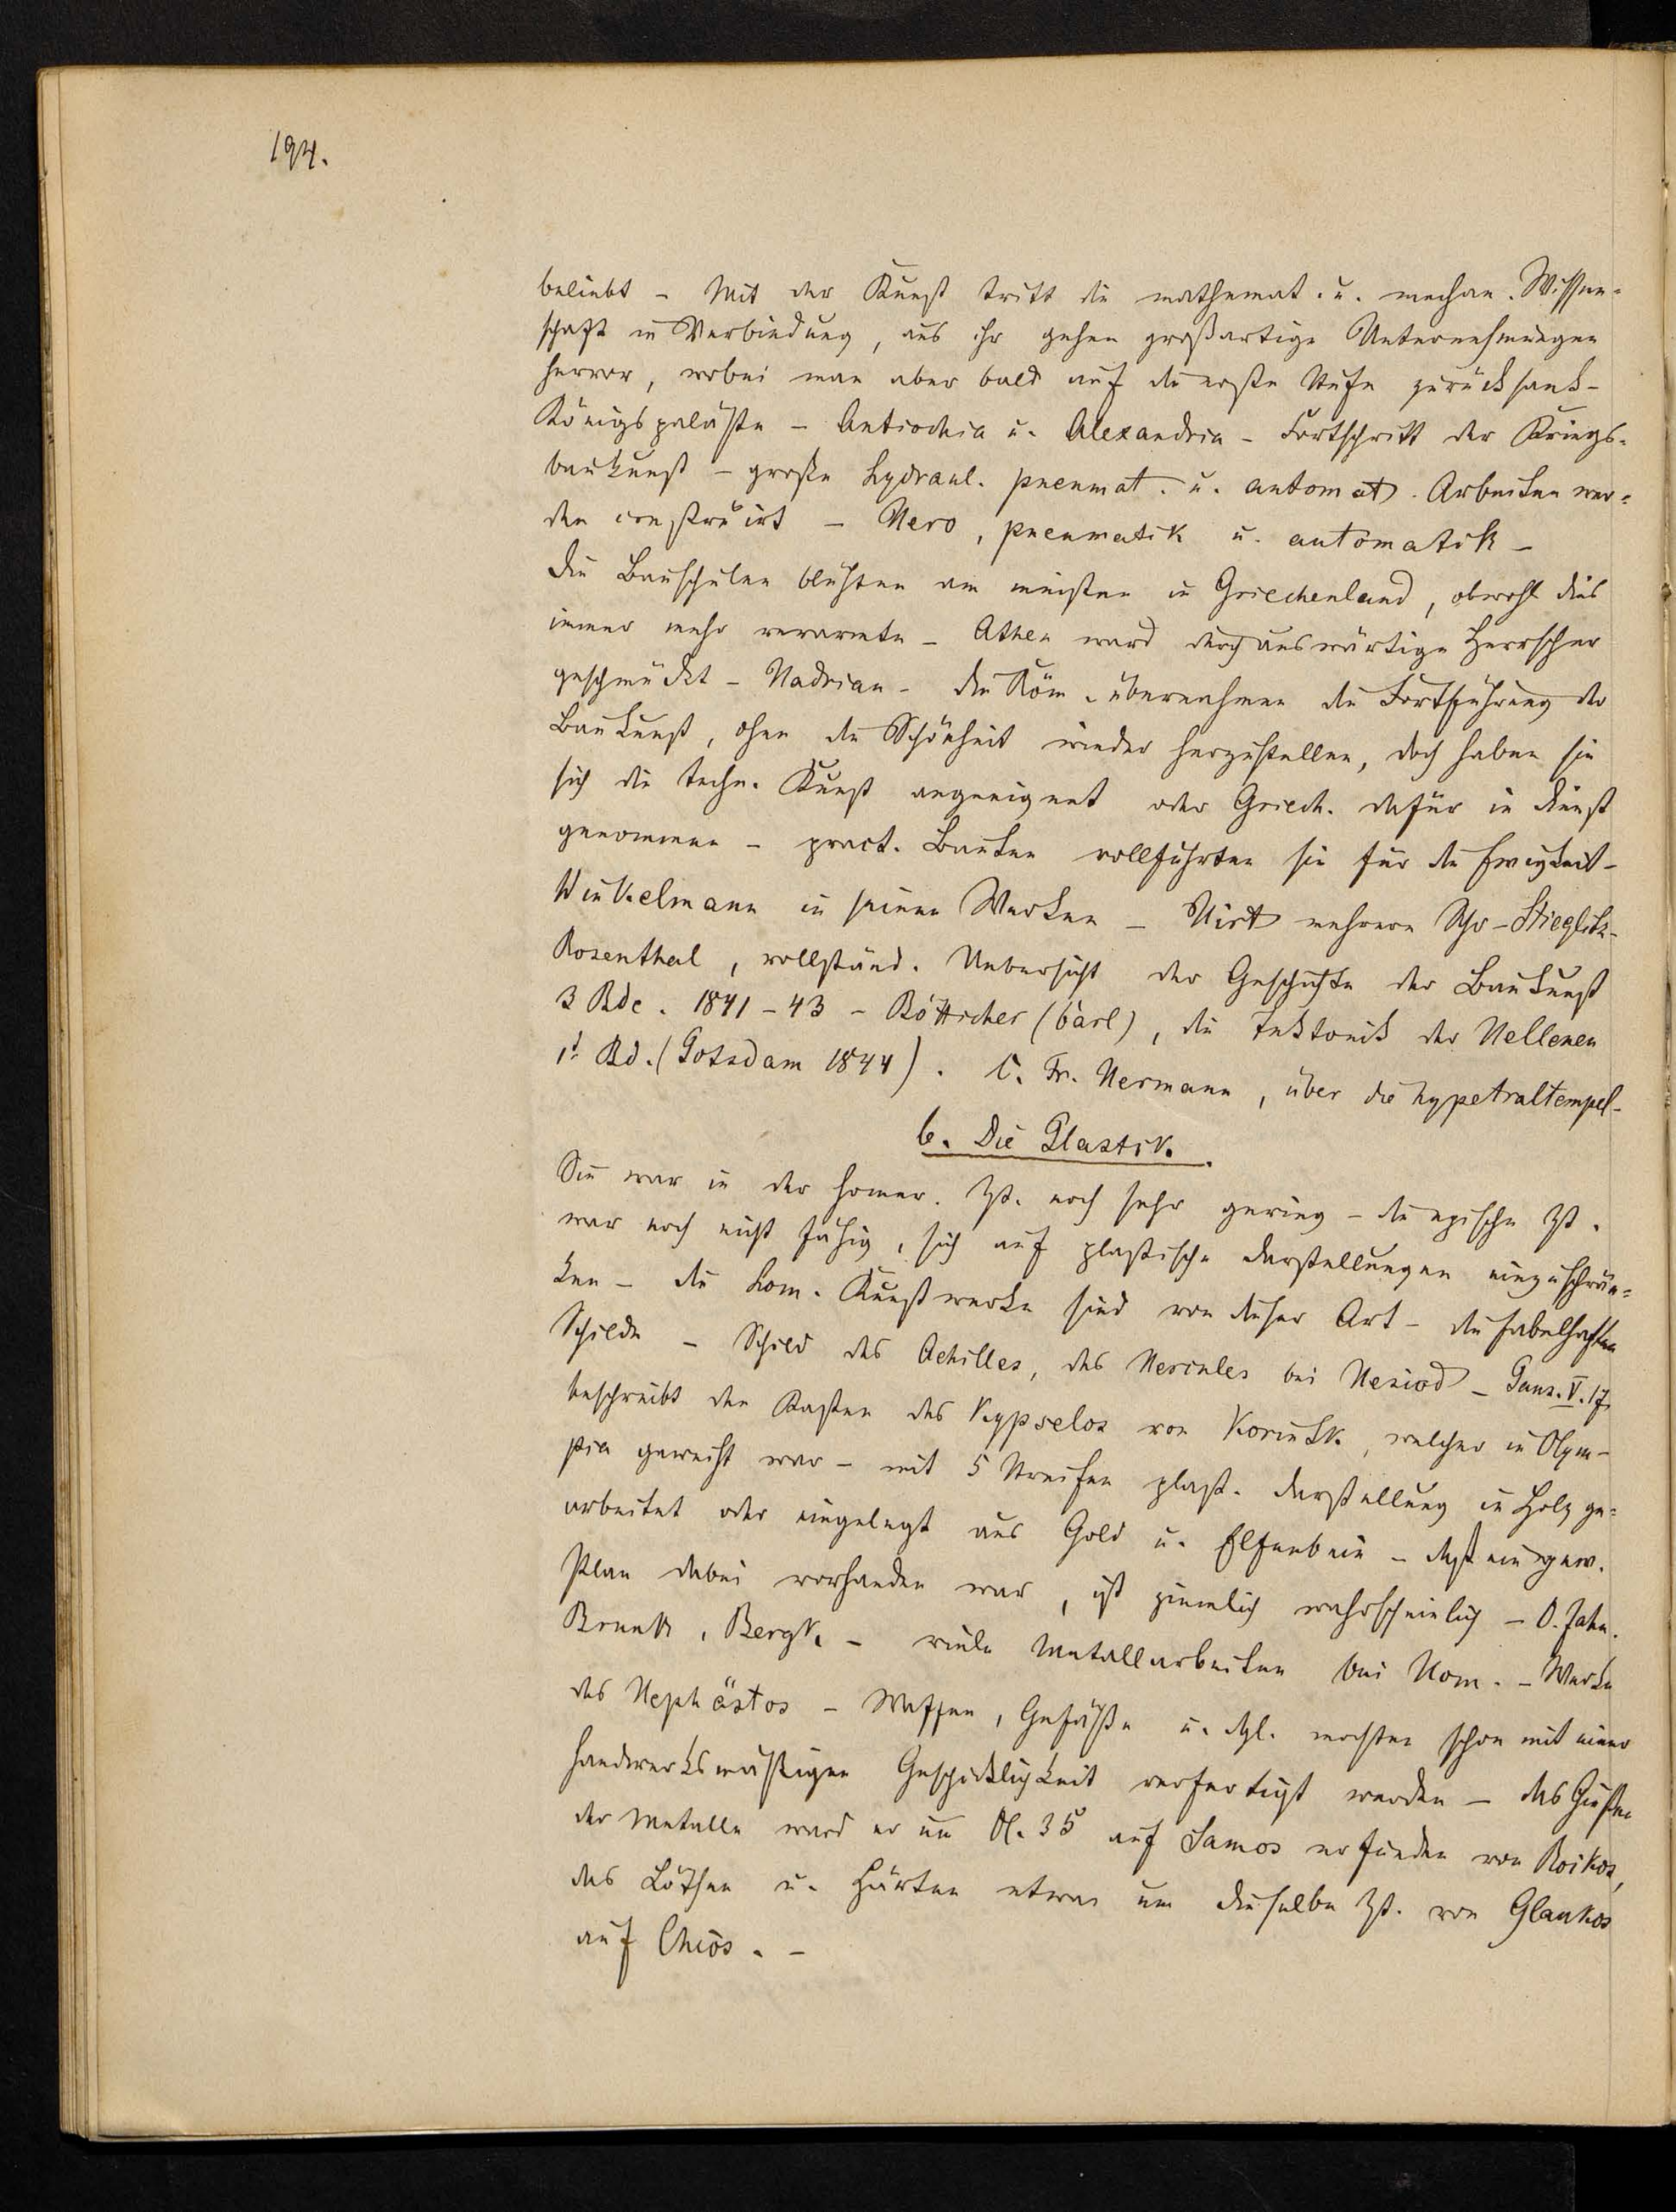 194.
beliebt – Mit der Kunst tritt die mathemat. u. mechan. Wissen-
schaft in Verbindung, aus ihr gehen großartige Unternehmungen
hervor, wobei man aber bald auf die erste Stufe zurücksank –
Königspaläste – Antiochia u. Alexandria – Fortschritt der Kriegs-
baukunst – große hydraul. pneumat. u. automat. Arbeiten wer-
den construirt – Hero, pneumatik u. automatik –
Die Bauschulen blühten am meisten in Griechenland, obwohl dies
immer mehr verarmte – Athen ward durch auswärtige Herrscher
geschmückt – Hadrian – die Röm. übernehmen die Fortführung der
Baukunst, ohne die Schönheit wieder herzustellen, doch haben sie
sich die techn. Kunst angeeignet oder Griech. dafür in Dienst
genommen – pract. Bauten vollführten sie für die Ewigkeit –
Winkelmann in seinen Werken – Hirt mehrere Schr – Stieglitz –
Rosenthal, vollständ. Uebersicht der Geschichte der Baukunst
3 Bde. 1841–43 – Bötticher (Carl), die Tektonik der Hellenen
1r Bd. (Potsdam 1844). C. Fr. Hermann, über die hypetraltempel –
b. Die Plastik.
Sie war in der homer. Zt. noch sehr gering – die epische Zt.
war noch nicht fähig, sich auf plastische Darstellungen einzuschrän-
ken – die hom. Kunstwerke sind von dieser Art – die fabelhaften
Schilde – Schild des Achilles, des Hercules bei Hesiod – Paus. V. 17.
beschreibt den Kasten des Kypselos von Korinth, welcher in Olym-
pia geweiht war – mit 5 Streifen plast. Darstellung in Holz ge-
arbeitet oder eingelegt aus Gold u. Elfenbein – daß ein gew.
Plan dabei vorhanden war, ist ziemlich wahrscheinlich – O. Jahn.
Brunn, Bergk. – viele Metallarbeiten bei Hom. – Werke
des Hephästos – Waffen, Gefäße u. dgl. mochten schon mit einer
handwerksmäßigen Geschicklichkeit verfertigt werden – das Gießen
der Metalle ward er um Ol. 35 auf Samos erfunden von Roikos,
das Löthen u. Härten etwa um dieselbe Zt. von Glaukos
auf Chios. –